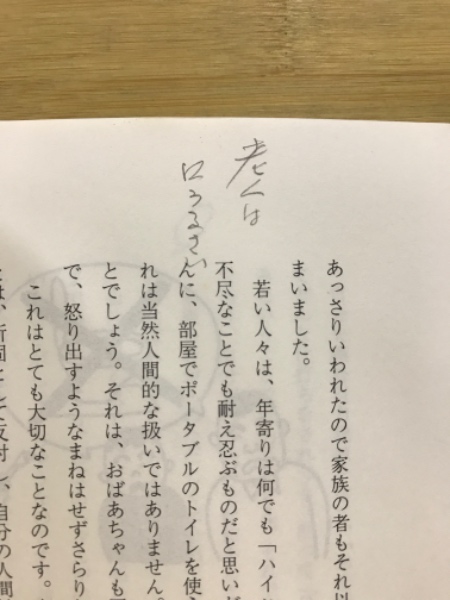 老人は
口うるさい
あっさりいわれたので家族の者もそれ以
まいました。
若い人々は、年寄りは何でも「ハイ
不尽なことでも耐え忍ぶものだと思いが
んに、部屋でポータブルのトイレを使
れは当然人間的な扱いではありません。
とでしょう。それは、おばあちゃんも
で、怒り出すようなまねはせずさらり
これはとても大切なことなのです。